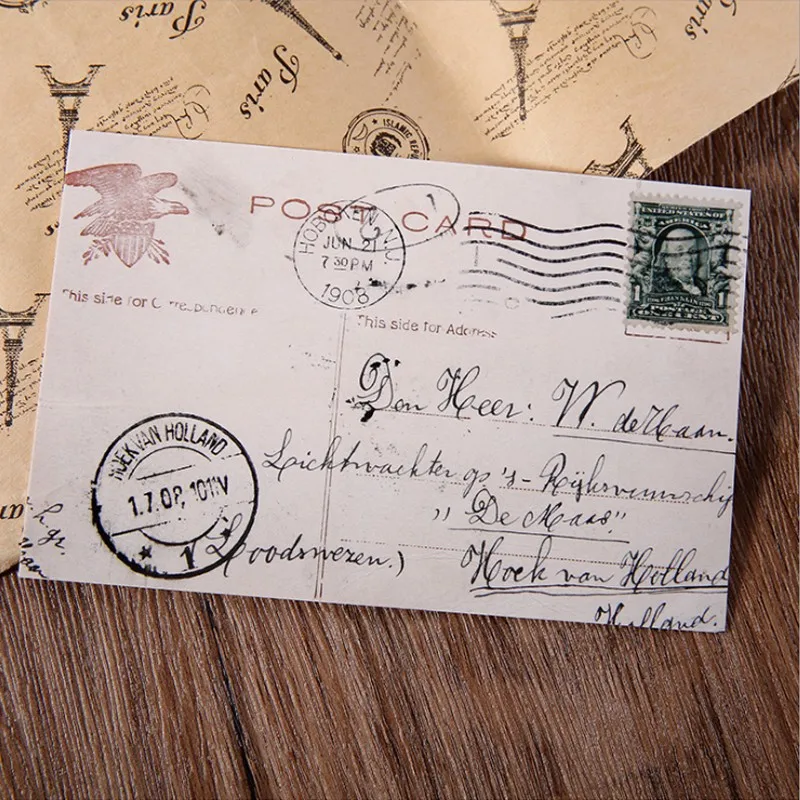 Paris
Paris
ISLAMIC REPU
POST CARD
HOBOKEN, N.J.
JUN 21
7 30 PM
1908
UNITED STATES OF AMERICA
1 1
POSTAGE
ONE CENT
This side for Correspondence
This side for Address
Den Heer: W. de Haan.
Lichtwachter op 's-Rijksvuurschip
"De Maas"
(Loodswezen.)
Hoek van Holland
Holland.
HOEK VAN HOLLAND
1.7.08, 10
1